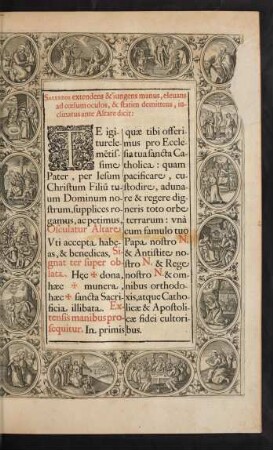 Sacerdos extendens & iungens manus, eleuans
ad cœlum oculos, & statim demittens, in-
clinatus ante Altare dicit:
TE igi-
tur cle-
mẽtis-
sime
Pater, per Iesum
Christum Filiũ tu-
um Dominum no-
strum, supplices ro-
gamus, ac petimus,
Osculatur Altare:
Vti accepta habe-
as, & benedicas, Si-
gnat ter super ob-
lata. Hęc ✠ dona,
hæc ✠ munera,
hæc ✠ sancta Sacri-
ficia illibata. Ex-
tensis manibus pro-
sequitur. In primis
quæ tibi offeri-
mus pro Eccle-
sia tua sancta Ca-
tholica: quam
pacificare, cu-
stodire, aduna-
re & regere dig-
neris toto orbe
terrarum: vnà
cum famulo tuo
Papa nostro N.
& Antistite no-
stro N. & Rege
nostro N. & om-
nibus orthodo-
xis, atque Catho-
licæ & Apostoli-
cæ fidei cultori-
bus.